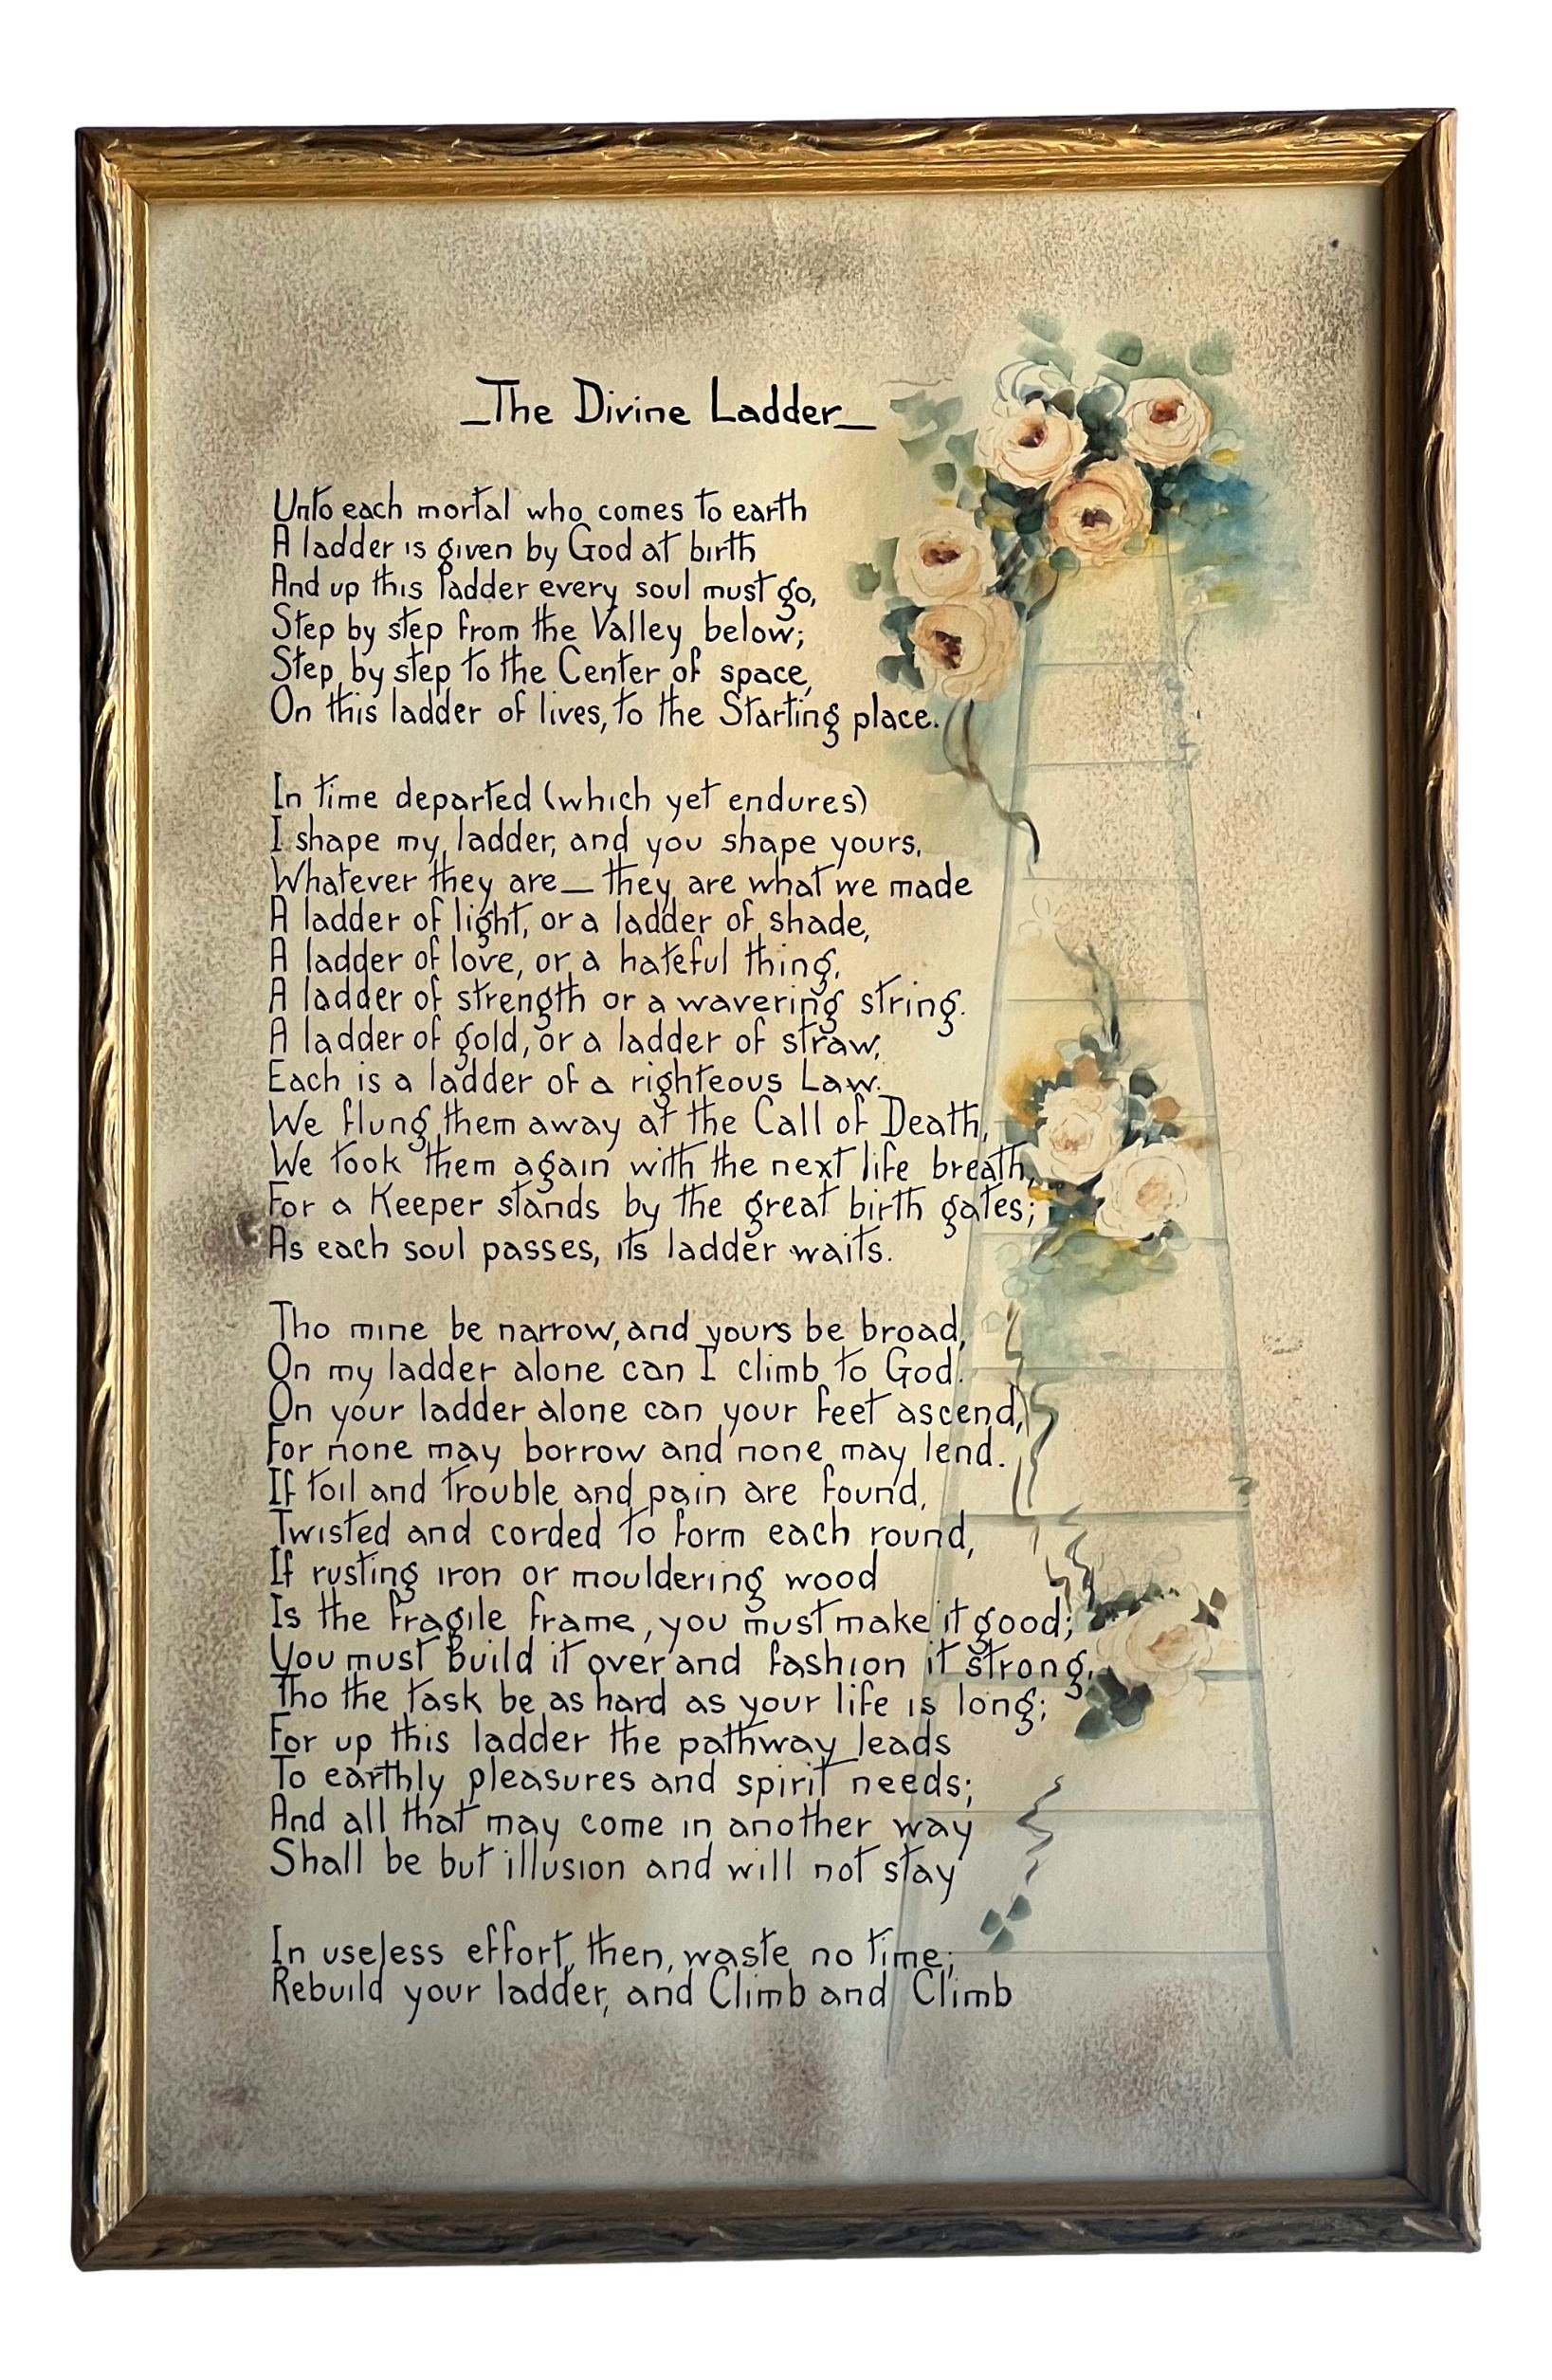 _The Divine Ladder_
Unto each mortal who comes to earth
A ladder is given by God at birth
And up this ladder every soul must go,
Step by step from the Valley below;
Step by step to the Center of space,
On this ladder of lives, to the Starting place.
In time departed (which yet endures)
I shape my ladder, and you shape yours,
Whatever they are_ they are what we made
A ladder of light, or a ladder of shade,
A ladder of love, or a hateful thing,
A ladder of strength or a wavering string.
A ladder of gold, or a ladder of straw,
Each is a ladder of a righteous Law.
We flung them away at the Call of Death,
We took them again with the next life breath,
For a Keeper stands by the great birth gates;
As each soul passes, its ladder waits.
Tho mine be narrow, and yours be broad,
On my ladder alone can I climb to God.
On your ladder alone can your feet ascend,
For none may borrow and none may lend.
If toil and trouble and pain are found,
Twisted and corded to form each round,
If rusting iron or mouldering wood
Is the fragile frame, you must make it good;
You must build it over and fashion it strong,
Tho the task be as hard as your life is long;
For up this ladder the pathway leads
To earthly pleasures and spirit needs;
And all that may come in another way
Shall be but illusion and will not stay
In useless effort, then, waste no time;
Rebuild your ladder, and Climb and Climb